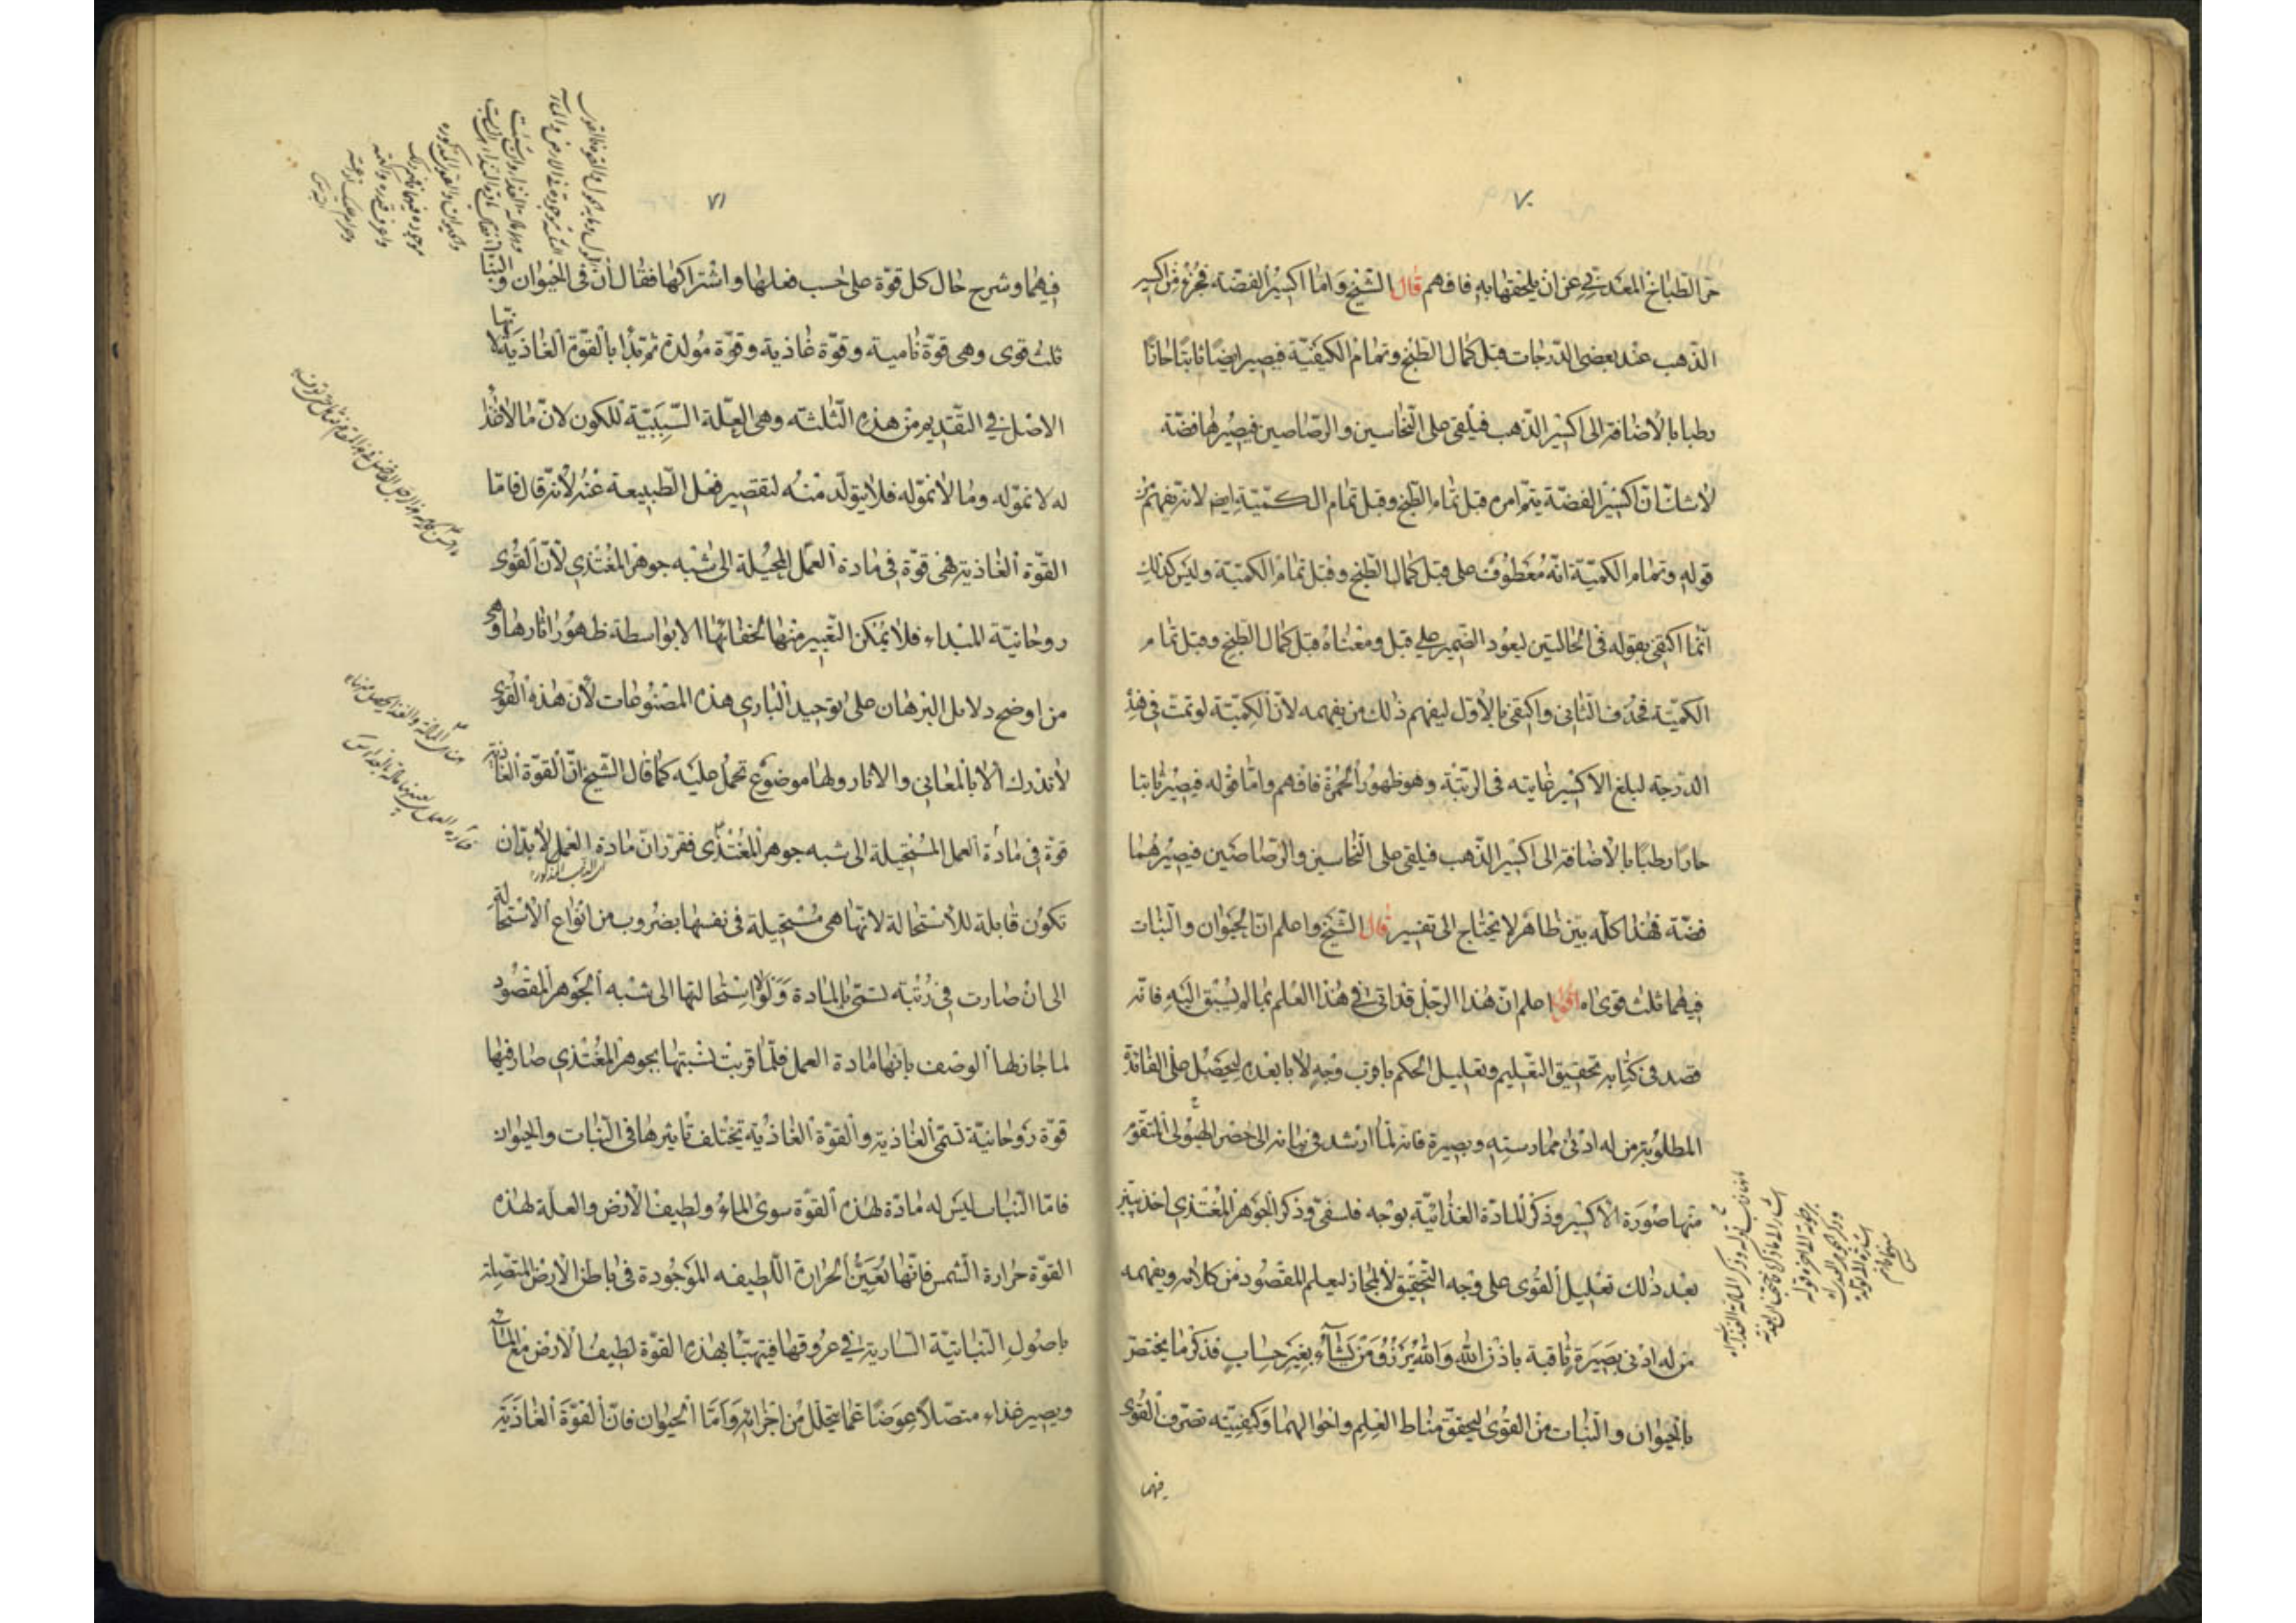 ٧٠
حر الطباخ المعدنى عن ان يلحقها به فافهم قال الشيخ واما اكسير الفضة فجزء من اكسير
الذهب عند بعض الدرجات قبل كمال الطبخ وتمام الكيفيّة فيصير ايضًا ثابتًا حارًا
رطبا بالاضافة الى اكسير الذهب فيلقى على النحاسين والرصاصين فيصيرها فضّة
لاشك ان اكسير الفضّة يتم امره قبل تمام الطبخ وقبل تمام الكميّة ايضا لانه يفهم من
قوله وتمام الكميّة انه معطوف على قبل كمال الطبخ وقبل تمام الكميّة وليس كذلك
انما اكتفى بقوله فى الحالتين ليعود الضمير على قبل ومعناه قبل كمال الطبخ وقبل تمام
الكميّة فحذف الثانى واكتفى بالاول ليفهم ذلك من يفهمه لان الكميّة لو تمت فى هذه
الدرجة لبلغ الاكسير غايته فى الرتبة وهو ظهور الحمرة فافهم واما قوله فيصير ثابتا
حارا رطبا بالاضافة الى اكسير الذهب فيلقى على النحاسين والرصاصين فيصيرهما
فضّة فهذا كله بين ظاهر لا يحتاج الى تفسير قال الشيخ واعلم ان الحيوان والنبات
فيهما ثلث قوى اه اقول اعلم ان هذا الرجل قد اتى فى هذا العلم بما لم يسبق اليه فانه
قصد فى كتابه تحقيق التعليم وتعليل الحكم باقرب وجه لا بابعده ليحصل على الفائدة
المطلوبة من له ادنى ممارسته وبصيرة فانه لما ارشد فى بيانه الى حصر الهيولى المتقوّم
منها صورة الاكسير وذكر المادة الغذائيّة بوجه فلسفى وذكر الجوهر المغتذى اخذ يبين
بعد ذلك تعليل القوى على وجه التحقيق لا المجاز ليعلم المقصود من كلامه ويفهمه
من له ادنى بصيرة ثاقبة باذن الله والله يرزق من يشآء بغير حساب فذكر ما يختص
بالحيوان والنبات من القوى ليحقق مناط العلم واحوالهما وكيفيته تصرف القوى
فيهما
٧١
فيهما وشرح حال كل قوّة على حسب فعلها واشتراكها فقال ان فى الحيوان والنبا
ثلث قوى وهى قوّة نامية وقوّة غاذية وقوّة مولدة ثم تبدأ بالقوّة الغاذية لانها
الاصل فى التقديم من هذه الثلثه وهى العلّة السببيّة للكون لان ما لا غذا
له لا نموّ له وما لا نموّ له فلا يتولّد منه لتقصير فعل الطبيعة عنه لانه قال فامّا
القوّة الغاذية فهى قوّة فى مادة العمل المحيلة الى شبه جوهر المغتذى لان القوى
روحانيّة المبداء فلا يمكن التعبير منها لخفائها الا بواسطة ظهور اثارها وهى
من اوضح دلائل البرهان على توحيد البارى هذه المصنوعات لان هذه القوى
لا تدرك الا بالمعانى والاثار ولها موضوع تحمل عليه كما قال الشيخ ان القوّة الغاذية
قوّة فى مادة العمل المستحيلة الى شبه جوهر المغتذى فقرر ان مادة العمل لا بد ان
تكون قابلة للاستحالة لانها هى مستحيلة فى نفسها بضروب من انواع الاستحالة
الى ان صارت فى رتبة تسمّى بالمادة ولولا استحالتها الى شبه الجوهر المقصود
لما جاز لها الوصف بانها مادة العمل فلما قربت نسبتها بجوهر المغتذى صار فيها
قوّة روحانيّة تسمّى الغاذية والقوّة الغاذية يختلف تأثيرها فى النبات والحيوان
فامّا النبات ليس له مادّة لهذه القوّة سوى الماء ولطيف الارض والعلّة لهذه
القوّة حرارة الشمس فانها تعين الحرارة اللطيفه الموجودة فى باطن الارض المتصلة
باصول النباتيّة السارية فى عروقها فيتهيّأ بهذه القوّة لطيف الارض مع الماء
ويصير غذاء متصلا عوضًا عمّا يتحلل من اجزائه وامّا الحيوان فان القوّة الغاذية